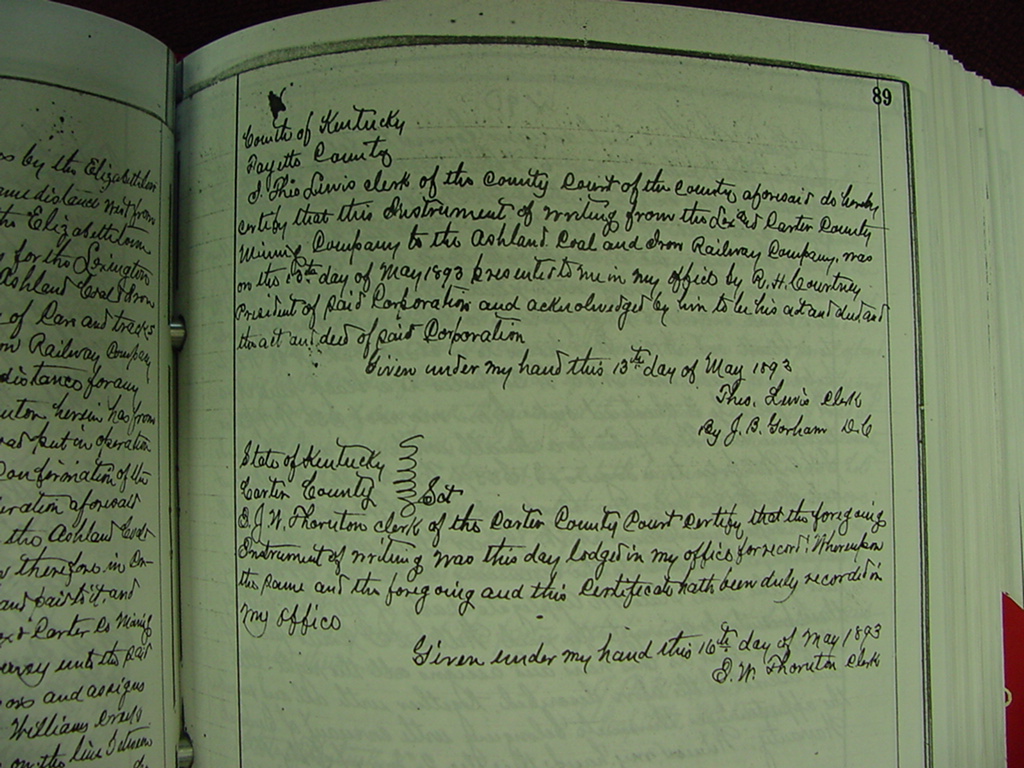 os by the Elizabethtown
same distance west from
the Elizabethtown
for the Lexington
Ashland Coal & Iron
of Cars and tracks
on Railway Company
distance for any
herein has from
put in operation
Confirmation of the
eration aforesaid
the Ashland Coal
therefore in Con-
and paid to it, and
Lex & Carter Co Mining
convey unto the said
ors and assigns
Williams Creek
on the line between
89
Commth of Kentucky
Fayette County
I, Theo Lewis clerk of the County Court of the County aforesaid do hereby
certify that this Instrument of writing from the Lex and Carter County
Mining Company to the Ashland Coal and Iron Railway Company, was
on the 13th day of May 1893 presented to me in my office by R. H. Courtney
President of said Corporation and acknolwedged by him to be his act and deed and
the act and deed of said Corporation
Given under my hand this 13th day of May 1893
Theo. Lewis Clerk
By J. B. Gorham D.C
State of Kentucky
Carter County } Sct
J. W. Thornton clerk of the Carter County Court certify that the foregoing
Instrument of writing was this day lodged in my office for record: Whereupon
the same and the foregoing and this Certificate hath been duly recorded in
my office
Given under my hand this 16th day of May 1893
J. W. Thornton Clerk